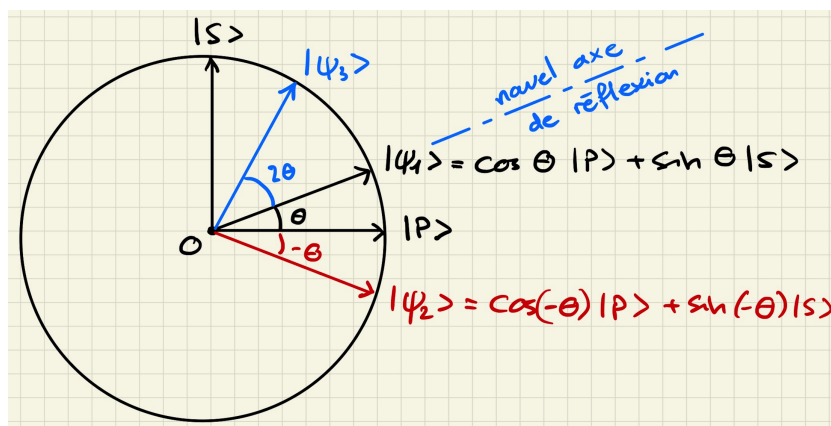 |S>
|ψ₃>
navel axe
de réflexion
2θ
|ψ₁> = cos θ |P> + sin θ |S>
θ
|P>
O
-θ
|ψ₂> = cos(-θ) |P> + sin (-θ) |S>